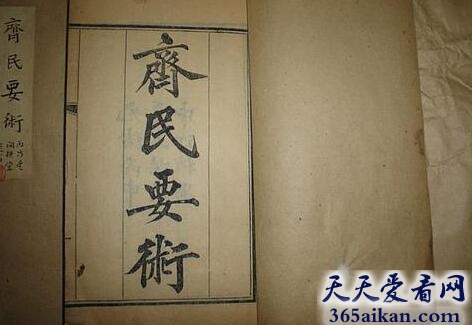 齊民要術
齊民要術
天天爱看网
365aikan.com